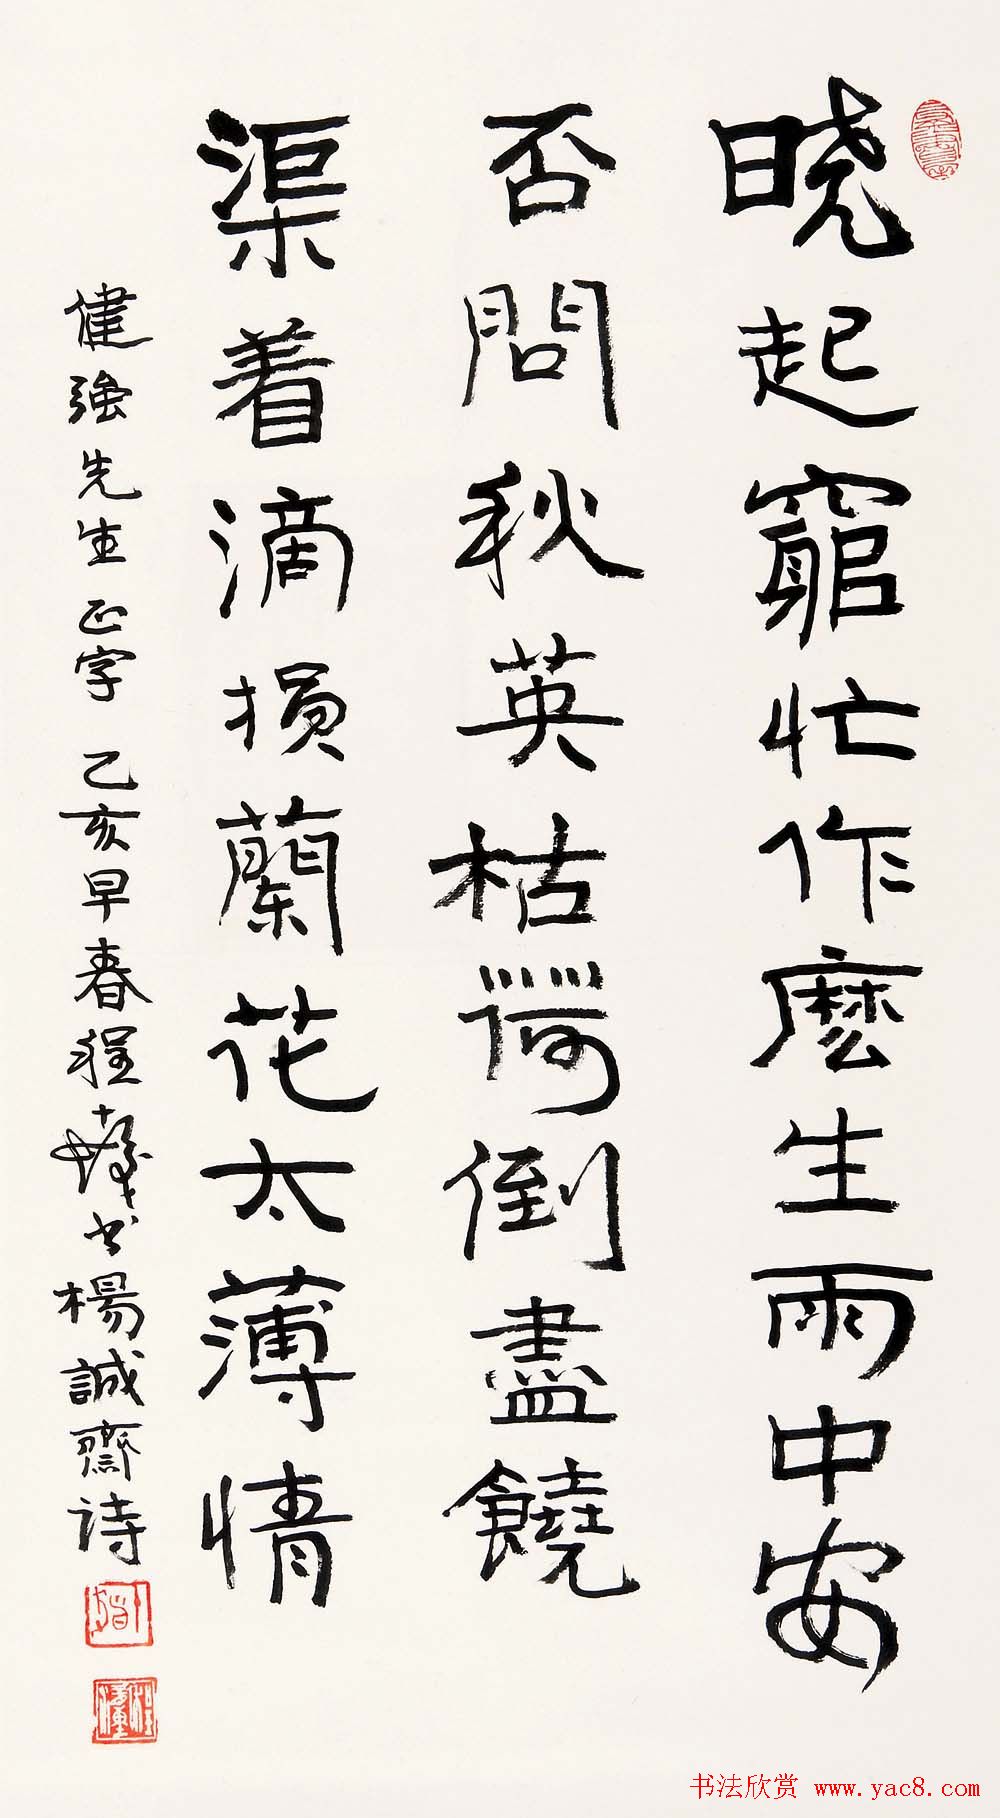 晓起窮忙作麼生雨中安
否問秋英枯荷倒盡饒
渠着滴損蘭花太薄情
健強先生正字 乙亥早春程十髮书楊誠齋诗
书法欣赏 www.yac8.com